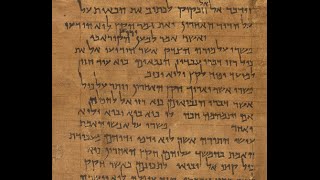 וידבר אל אל חבקוק לכתוב את הבאות על
על הדור האחרון ואת גמר הקץ לוא הודעו
ואשר אמר למען ירוץ הקורא בו
פשרו על מורה הצדק אשר הודיעו אל את
כול רזי דברי עבדיו הנבאים כיא עוד חזון
למועד יפיח לקץ ולוא יכזב
פשרו אשר יארוך הקץ האחרון ויתר על כול
אשר דברו הנביאים כיא רזי אל להפלה
אם יתמהמה חכה לו כיא בוא יבוא ולוא
יאחר פשרו על אנשי האמת
עושי התורה אשר לוא ירפו ידיהם מעבודת
האמת בהמשך עליהם הקץ האחרון כיא
כול קיצי אל יבואו לתכונם כאשר חקק